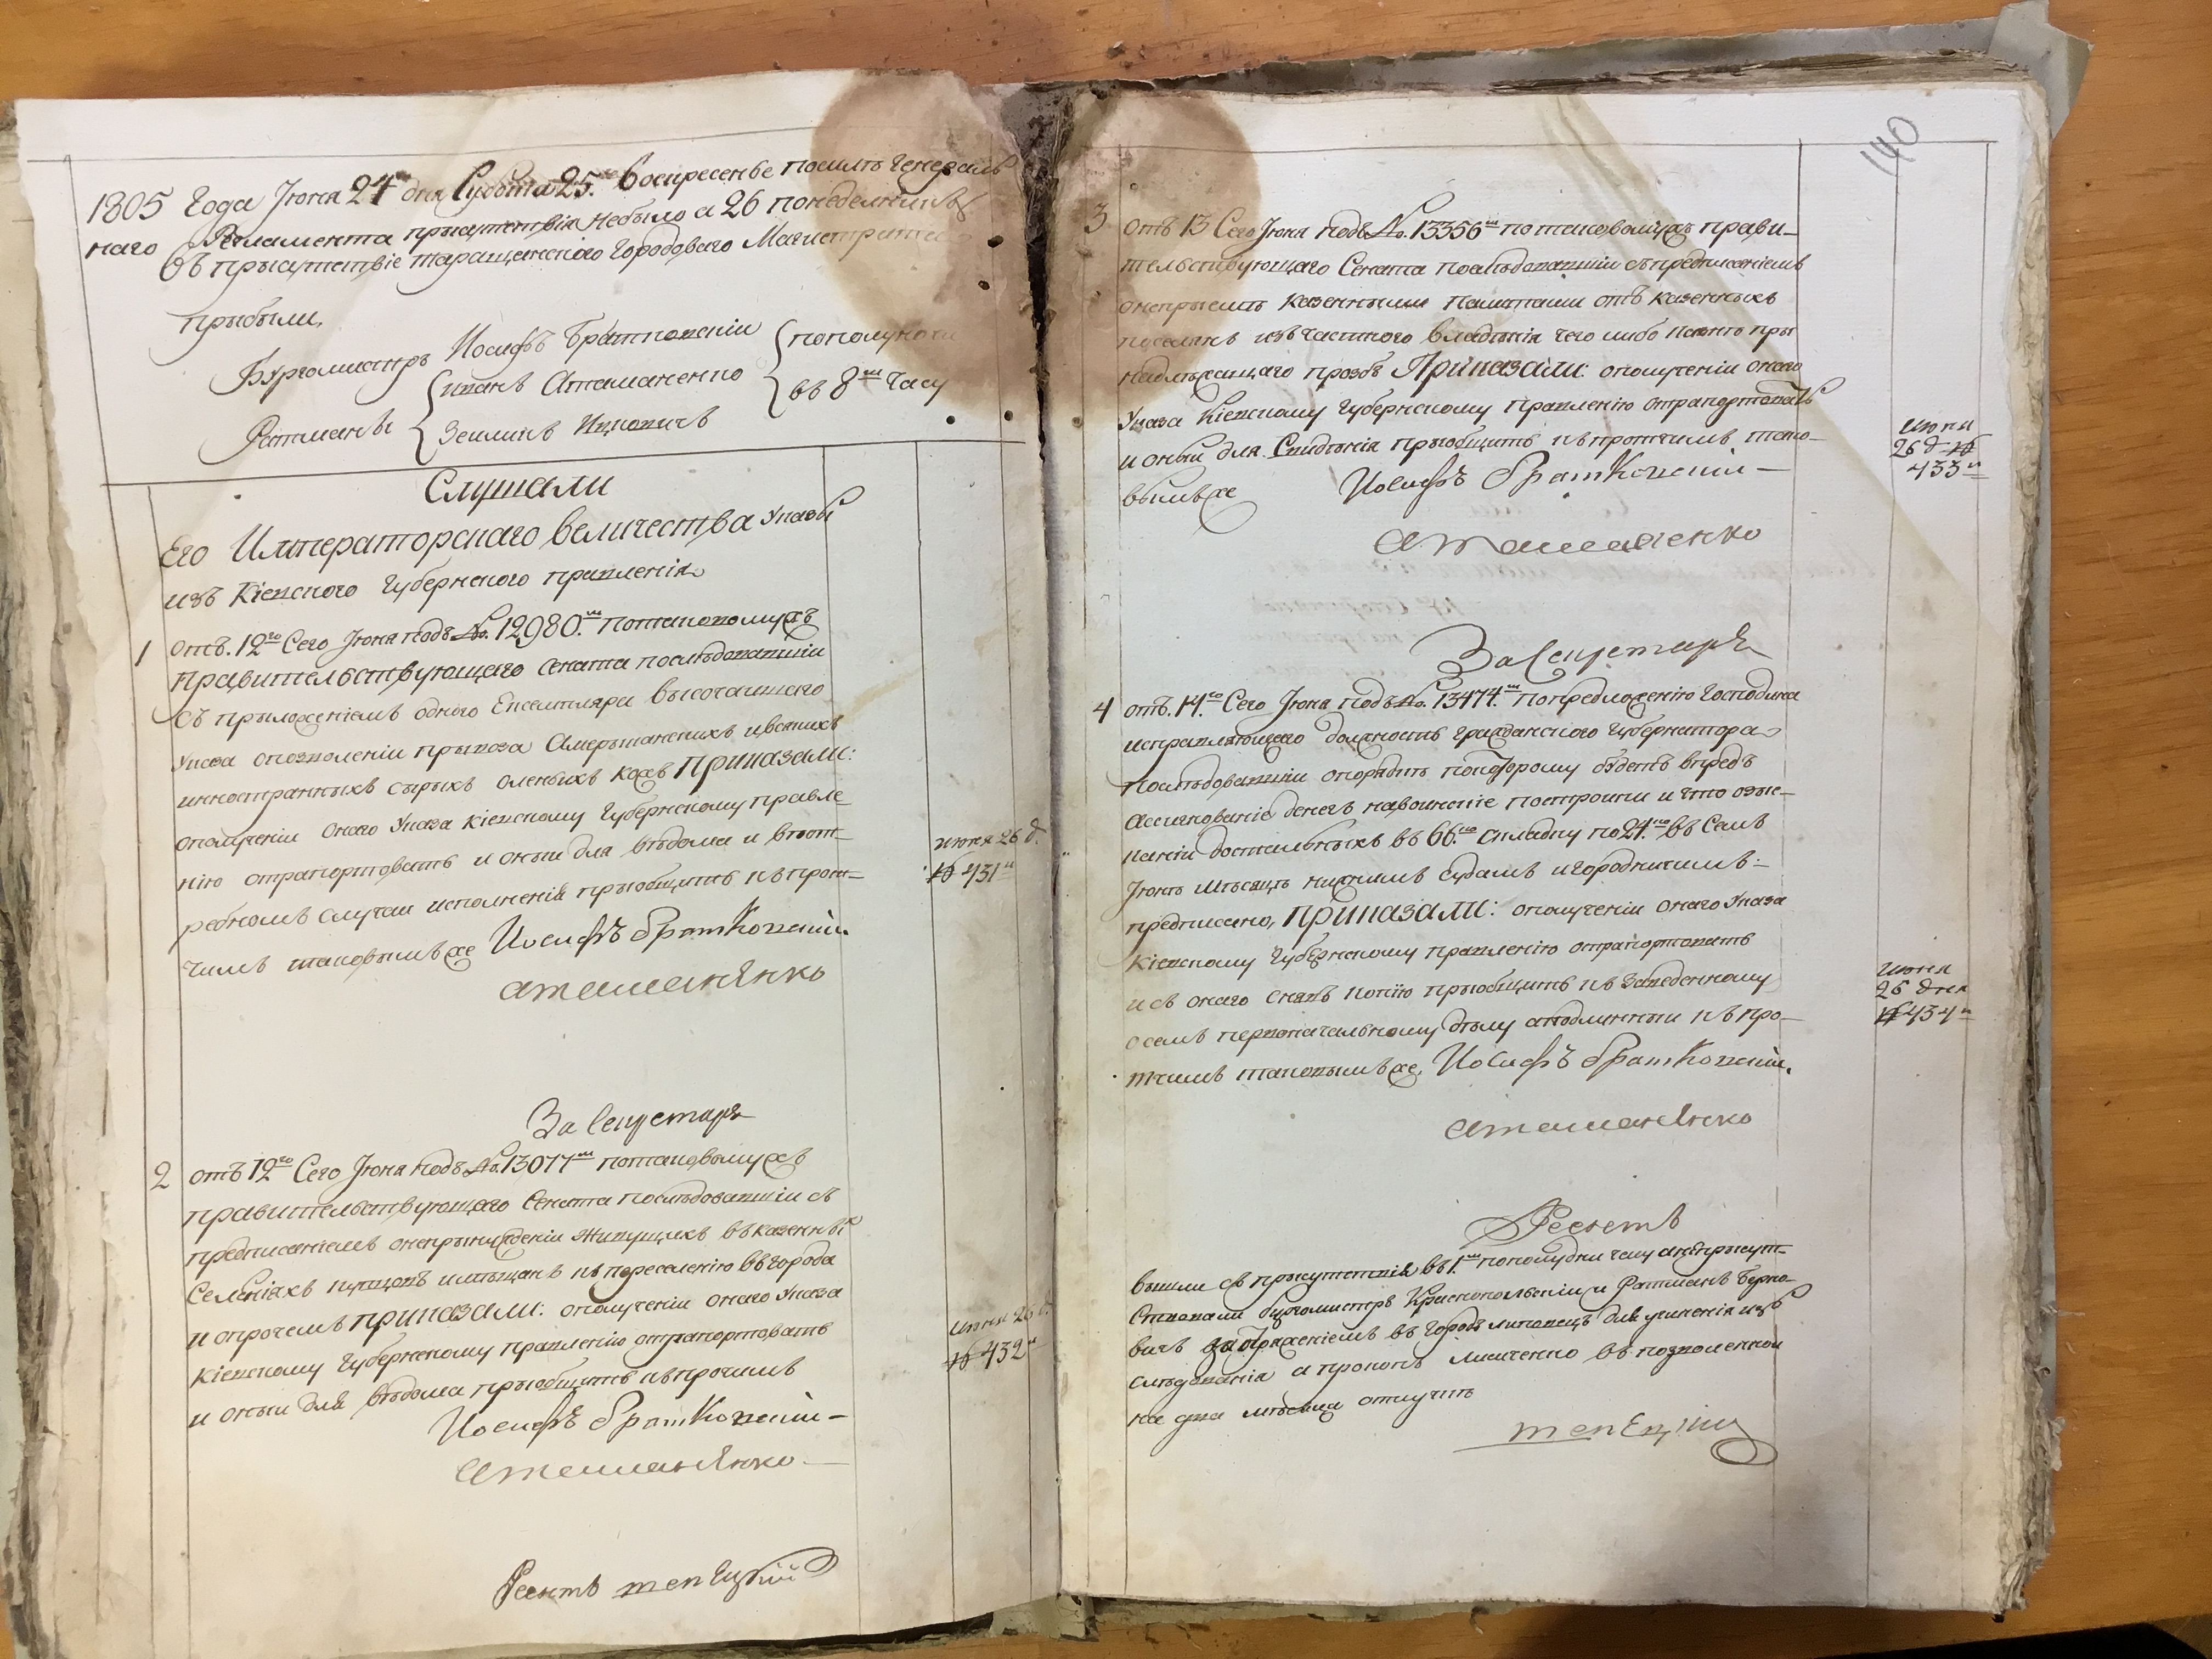 1805 года Июня 24 дня Субота 25. Воскресенье посилъ генераль
наго Регламента присутствія небыло а 26 понеделникъ
въ присутствіе таращанского городоваго Магистрата
прибыли,
Бургомистръ Иосифъ Братковскій
Ратманы
иванъ Атаманенко
Зейликъ Ицковичъ
пополуночи
въ 8м часу
Слушали
Его Императорскаго величества Указы
изъ Кіевского губернского правленія
1
отъ. 12го Сего Июня подъ No. 12980.м потаковомужъ
правительствующего сената последовавшіи
съ приложеніемъ одного Екземпляра высочаишего
Указа опозволеніи привоза Американскихъ ивсякихъ
инностранныхъ сырыхъ оленьихъ кожъ приказали:
ополученіи онаго Указа кіевскому губернскому правле
нію отрапортовать и оныи для ведома и впот-
ребномъ случаи исполненія приобщить къпрот-
чимъ таковымъ же Иосифъ Братковский
атаманенко
июня 26 д.
No 431м
За Секретаря
2
отъ 12го Сего Июня подъ No. 13077м потаковомужъ
правительствующего Сената последовавшіи съ
предписаніемъ онепринужденіи живущихъ въказенныхъ
Селеніяхъ купцовъ имещанъ къ переселенію въгорода
и опрочемъ приказали: ополученіи онаго Указа
Кіевскому губернскому правленію отрапортовать
и оныи для ведома приобщить къпрочимъ
Иосифъ Братковский
атаманенко
июня 26 д.
No 432м
Регентъ
140
3
отъ 13 Сего Июня подъ No. 13356м потаковомужъ прави-
тельствующаго Сената последовавшіи съпредписаніемъ
онепрыеме казенными палатами отъ казенныхъ
поселянъ изъ частного владенія чего либо комупры
надлежащаго прозбъ Приказали: ополученіи онаго
Указа Кіевскому губернскому правленію отрапортовать
и оныи для Сведенія приобщить къпротчимъ тако-
вымъ же
Иосифъ Братковский
атаманенко
июня
26 д No
433м
За Секретаря
4
отъ. 14.го Сего Июня подъ No. 13474.м попредложенію Господина
исправляющаго должность гражданского губернатора
последовавшіи опорядке покоторому будетъ впредь
Асигнованіе денегъ навоинскіе постройки и что
въ 66.ю складку по 24.ю въ Семъ
Июне месяце нижнимъ судамъ игородничимъ
предписано, приказали: ополученіи онаго Указа
кіевскому губернскому правленію отрапортовать
исъ онаго снявъ копію приобщить къ заведенному
осемъ первоначальному делу аподлинныи къ про-
тчимъ таковымъ же. Иосифъ Братковский.
атаманенко
июня
26 дня
No 434м
Регентъ
вышли съ присутствія въ 1.м пополудни часу анеприсут-
ствовали бургомистръ Краснопольскіи и Ратманъ Берко-
вичъ заотряженіемъ въ городъ липовецъ для учиненія изъ
следованія а прокопъ лисиченко въ позволенной
на два месяца отлучке